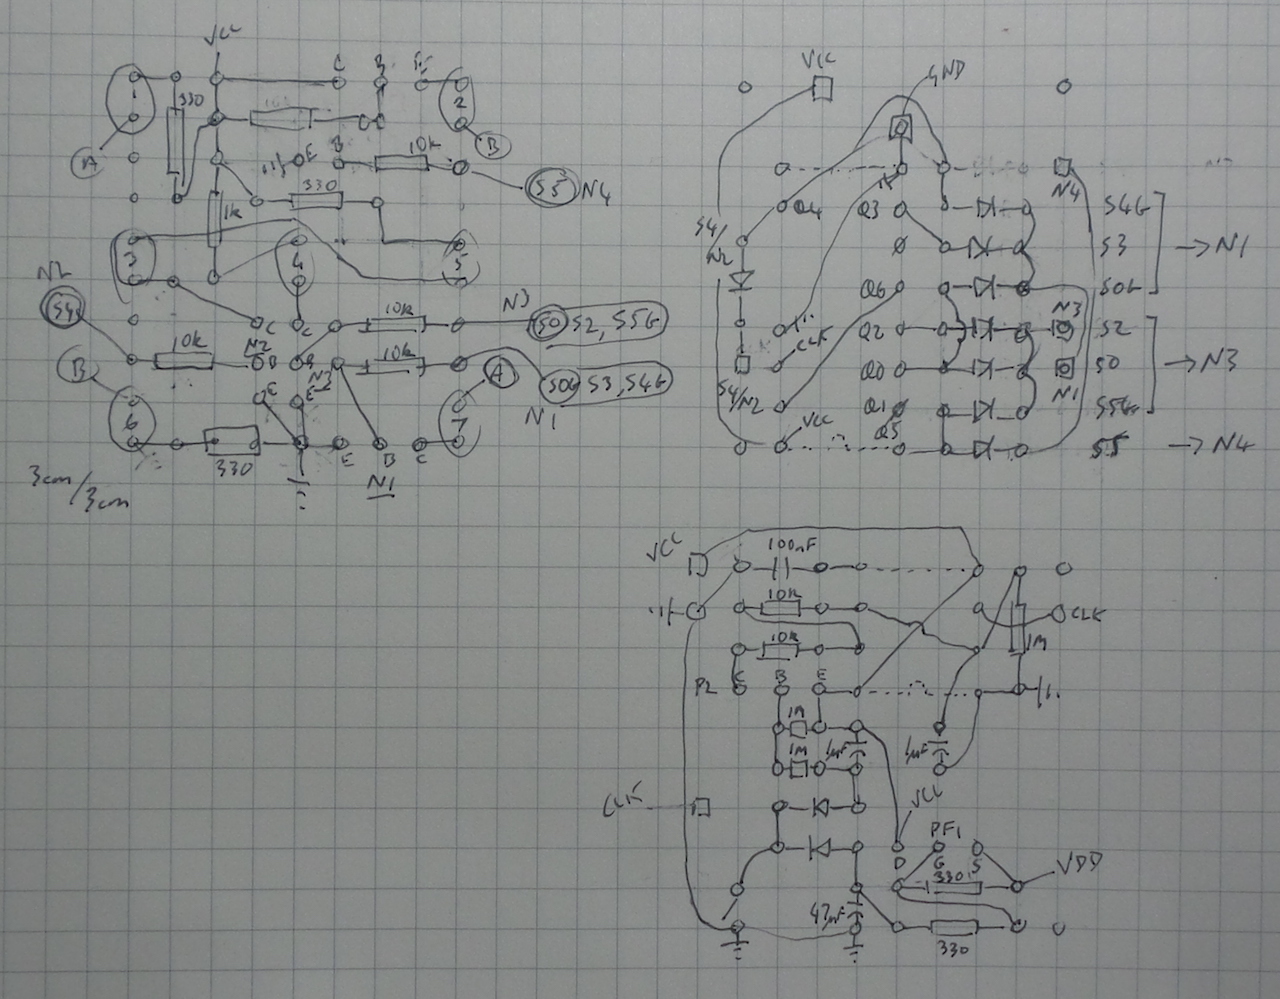 VCC
C B E
1
330
2
A
B
E
B
10k
S5 N4
330
1k
3
4
5
N2
S4
C
C
10k
N3
S0 S2, S5G
10k
N2
B
B
10k
S0G S3, S4G
B
A
N1
E
E
6
7
330
E
B
C
N1
3cm/3cm
VCC
GND
N4
Q4
Q3
S4G
S4/N2
S3 → N1
Q6
S0G
N3
Q2
S2
CLK
Q0
S0 → N3
N1
S4/N2
Q1
S5G
VCC
Q5
S5 → N4
VCC
100nF
10k
CLK
10k
1M
P2
C
B
E
1M
1M
1µF
1µF
CLK
VCC
PF1
D
G
S
330
VDD
47µF
330